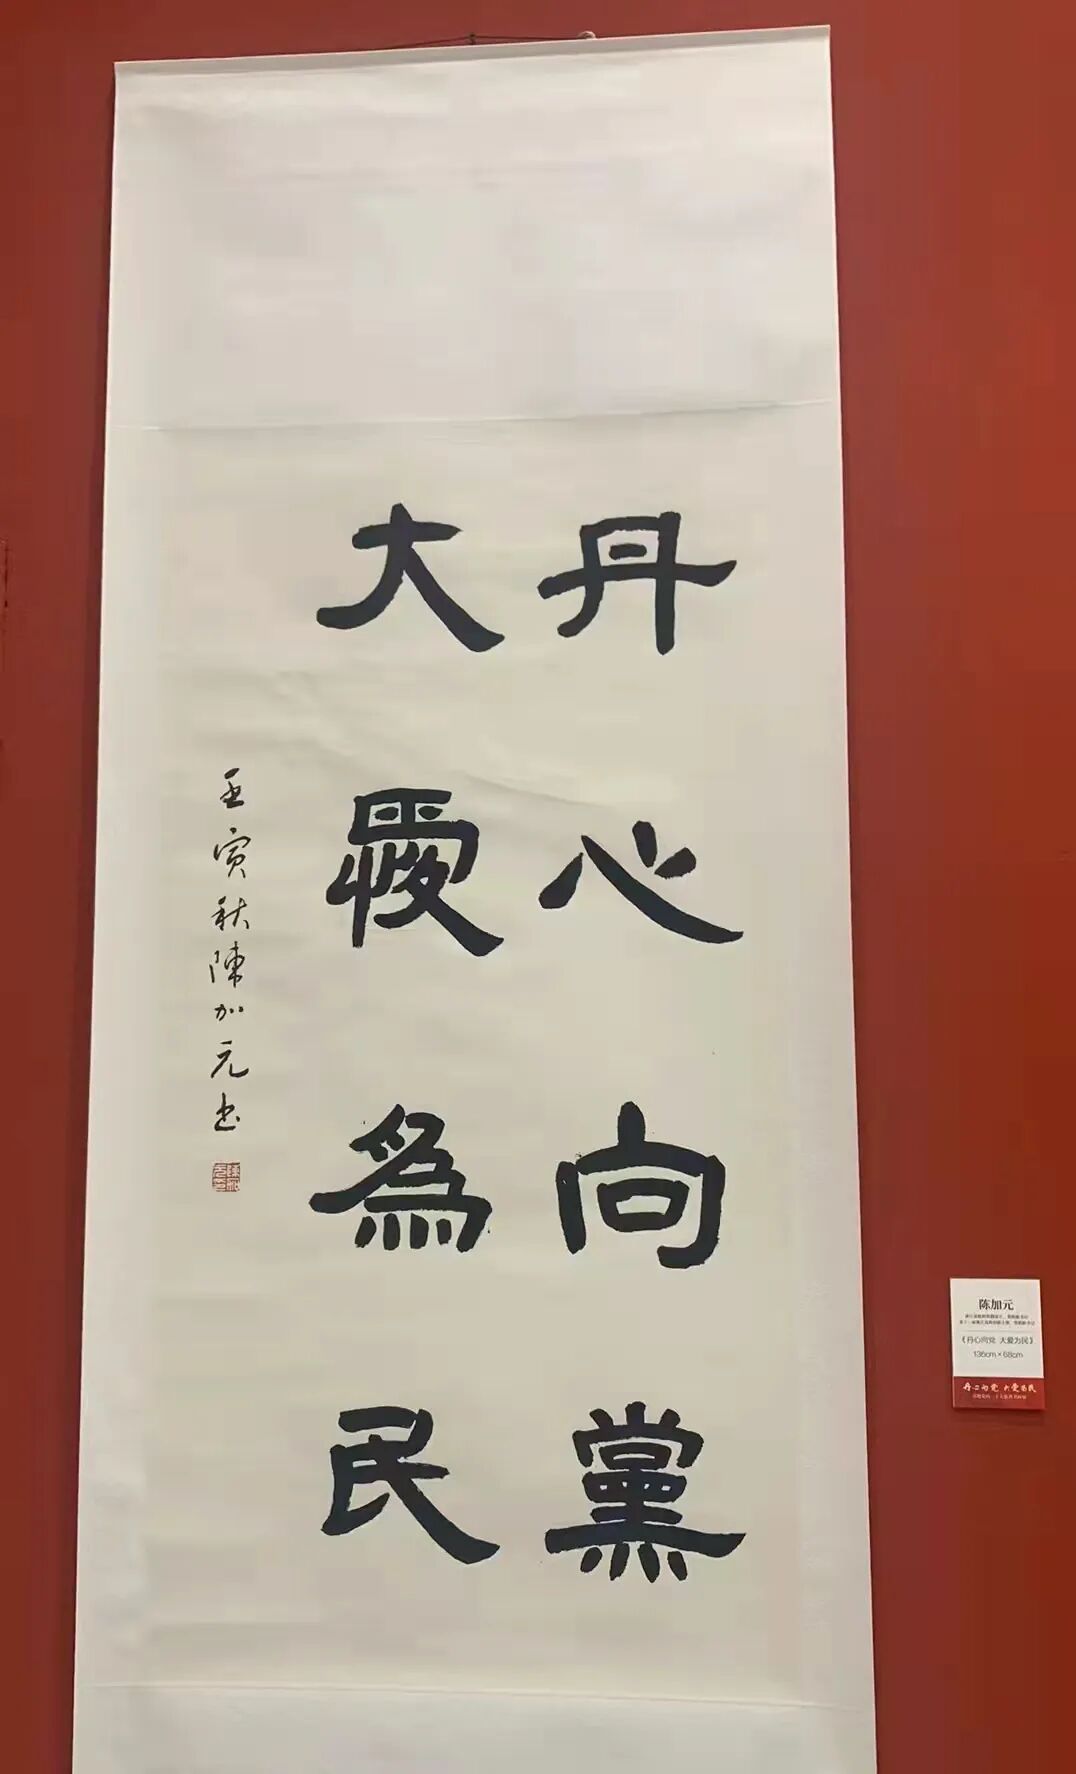 丹心向黨
大愛為民
壬寅秋陳加元书
陈加元
《丹心向党 大爱为民》
136cm×68cm
丹心向党 大爱为民